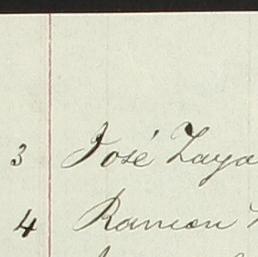 3 José Zaya
4 Ramon